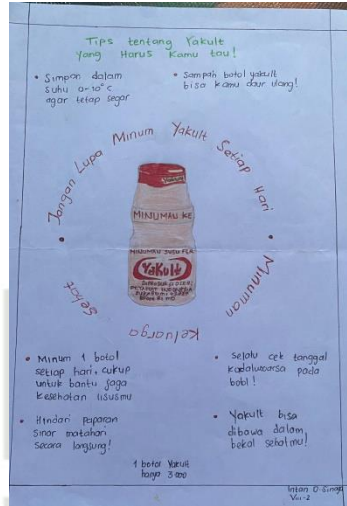 Tips tentang Yakult
Yang Harus Kamu tau!
• Simpan dalam
suhu 0-10°c
agar tetap segar
• Sampah botol yakult
bisa kamu daur ulang!
• Jangan Lupa Minum Yakult Setiap Hari •
Minuman
Keluarga
Sehat
Yakult
MINUMAN KE
MINUMAN SUSU FER
Yakult
• Minum 1 botol
setiap hari, cukup
untuk bantu jaga
kesehatan ususmu
• Hindari paparan
sinar matahari
secara langsung!
• Selalu cek tanggal
kadaluwarsa pada
botol!
• Yakult bisa
dibawa dalam
bekal sehatmu!
1 botol Yakult
hanya 3000
Intan O. Sinaga
VIII-2